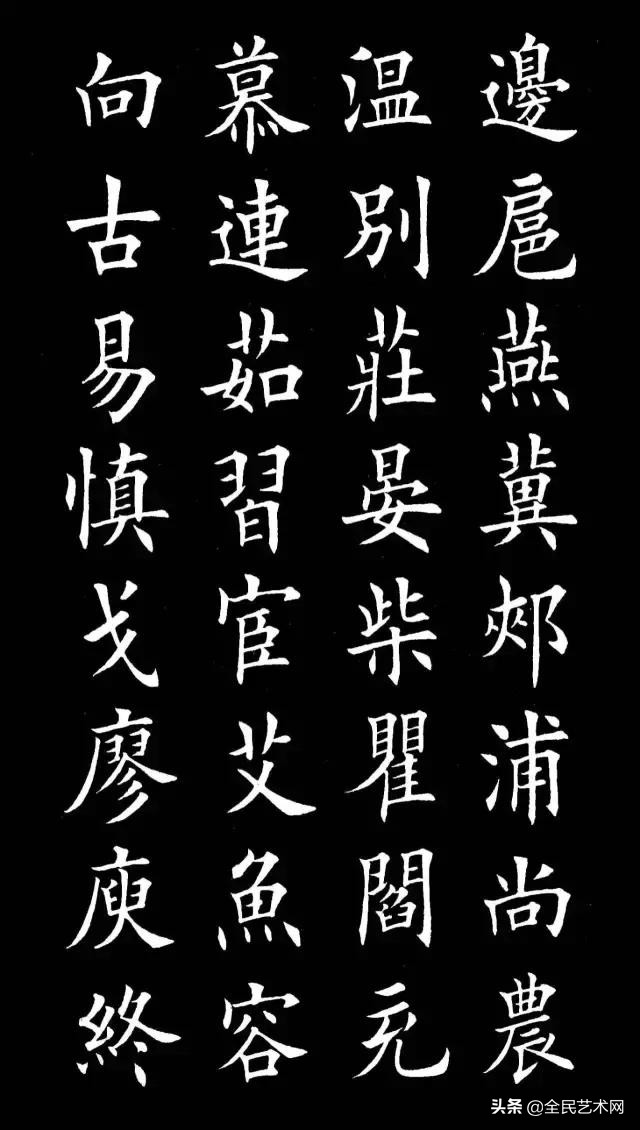 邊扈燕冀郟浦尚農
温別莊晏柴瞿閻充
慕連茹習宦艾魚容
向古易慎戈廖庾終
头条 @全民艺术网